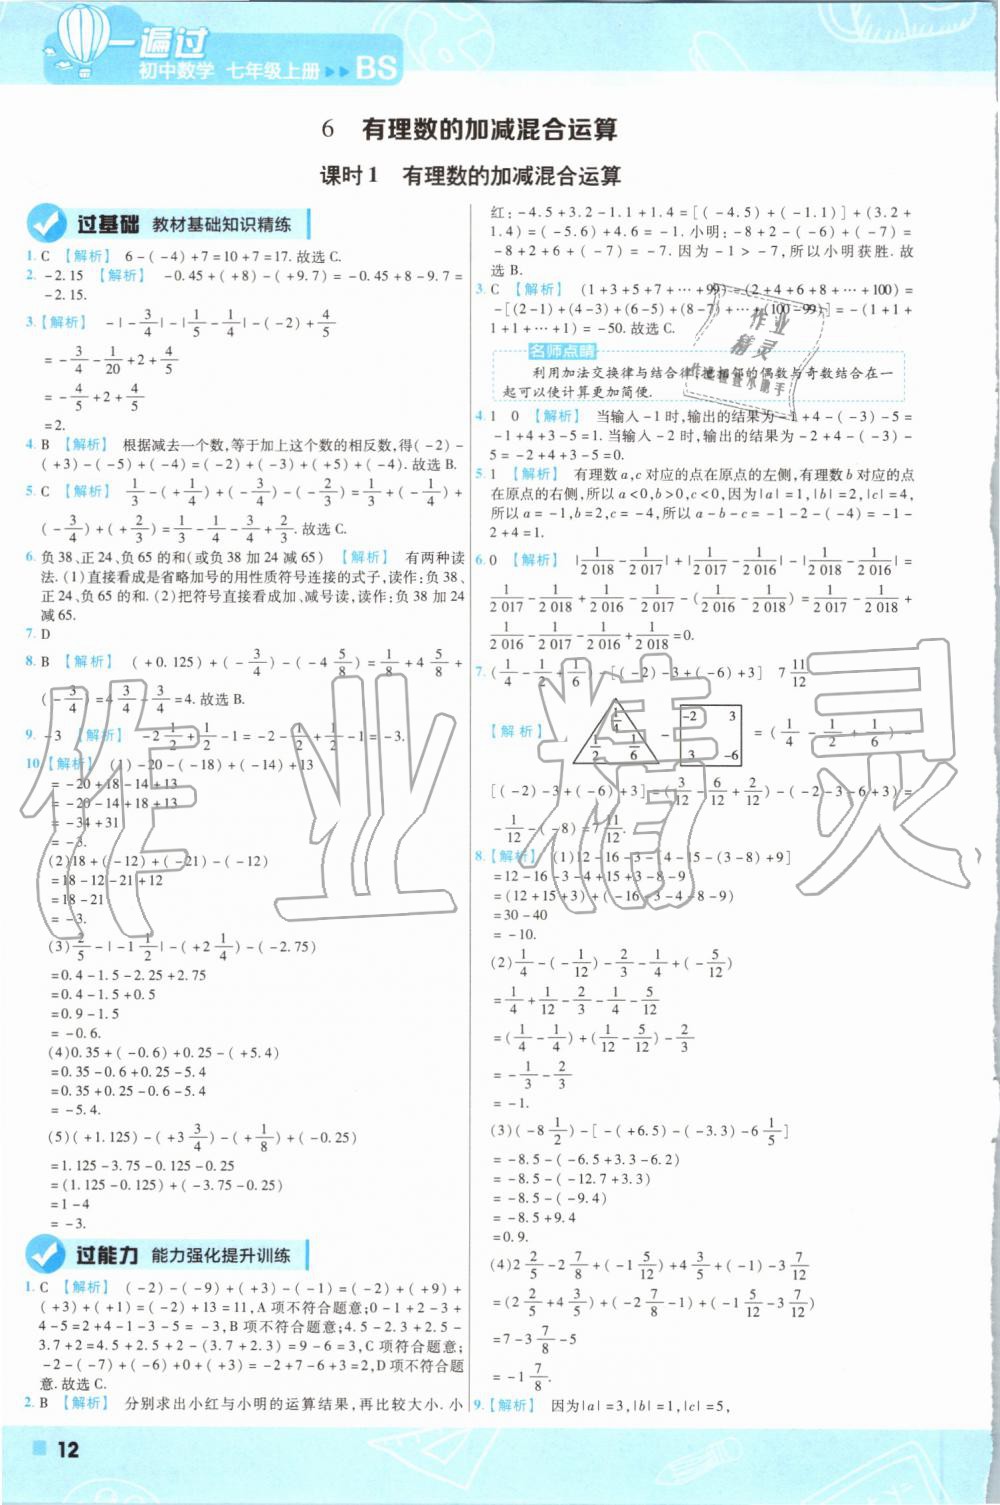 一遍过
初中数学 七年级上册 ▶▶ BS
6 有理数的加减混合运算
课时1 有理数的加减混合运算
过基础 教材基础知识精练
1. C 【解析】 6-(-4)+7=10+7=17.故选C.
2. -2.15 【解析】 -0.45+(+8)-(+9.7)=-0.45+8-9.7=
-2.15.
3.【解析】 -|-3/4|-|1/5-1/4|-(-2)+4/5
=-3/4-1/20+2+4/5
=-4/5+2+4/5
=2.
4. B 【解析】 根据减去一个数,等于加上这个数的相反数,得(-2)-
(+3)-(-5)+(-4)=(-2)+(-3)+(+5)+(-4).故选B.
5. C 【解析】 1/3-(+1/4)+(-3/4)-(-2/3)=1/3+(-1/4)+
(-3/4)+(+2/3)=1/3-1/4-3/4+2/3.故选C.
6. 负38、正24、负65的和(或负38加24减65) 【解析】 有两种读
法.(1)直接看成是省略加号的用性质符号连接的式子,读作:负38、
正24、负65的和.(2)把符号直接看成加、减号读,读作:负38加24
减65.
7. D
8. B 【解析】 (+0.125)+(-3/4)-(-4 5/8)=1/8+4 5/8+
(-3/4)=4 3/4-3/4=4.故选B.
9. -3 【解析】 -2 1/2+1/2-1=-2-1/2+1/2-1=-3.
10.【解析】 (1)-20-(-18)+(-14)+13
=-20+18-14+13
=-20-14+18+13
=-34+31
=-3.
(2)18+(-12)+(-21)-(-12)
=18-12-21+12
=18-21
=-3.
(3)2/5-|-1 1/2|-(+2 1/4)-(-2.75)
=0.4-1.5-2.25+2.75
=0.4-1.5+0.5
=0.9-1.5
=-0.6.
(4)0.35+(-0.6)+0.25-(+5.4)
=0.35-0.6+0.25-5.4
=0.35+0.25-0.6-5.4
=-5.4.
(5)(+1.125)-(+3 3/4)-(+1/8)+(-0.25)
=1.125-3.75-0.125-0.25
=(1.125-0.125)+(-3.75-0.25)
=1-4
=-3.
过能力 能力强化提升训练
1. C 【解析】 (-2)-(-9)+(+3)-(-1)=(-2)+(+9)+
(+3)+(+1)=(-2)+13=11,A项不符合题意;0-1+2-3+
4-5=2+4-1-3-5=-3,B项不符合题意;4.5-2.3+2.5-
3.7+2=4.5+2.5+2-(3.7+2.3)=9-6=3,C项符合题意;
-2-(-7)+(-6)+0+(+3)=-2+7-6+3=2,D项不符合题
意.故选C.
2. B 【解析】 分别求出小红与小明的运算结果,再比较大小.小
红:-4.5+3.2-1.1+1.4=[(-4.5)+(-1.1)]+(3.2+
1.4)=(-5.6)+4.6=-1.小明:-8+2-(-6)+(-7)=
-8+2+6+(-7)=-7.因为-1>-7,所以小明获胜.故
选B.
3. C 【解析】 (1+3+5+7+…+99)-(2+4+6+8+…+100)=
-[(2-1)+(4-3)+(6-5)+(8-7)+…+(100-99)]=-(1+1+
1+1+…+1)=-50.故选C.
名师点睛
利用加法交换律与结合律,把相邻的偶数与奇数结合在一
起可以使计算更加简便.
4. 1 0 【解析】 当输入-1时,输出的结果为-1+4-(-3)-5=
-1+4+3-5=1.当输入-2时,输出的结果为-2+4-(-3)-
5=-2+4+3-5=0.
5. 1 【解析】 有理数a,c对应的点在原点的左侧,有理数b对应的点
在原点的右侧,所以a<0,b>0,c<0,因为|a|=1,|b|=2,|c|=4,
所以a=-1,b=2,c=-4,所以a-b-c=-1-2-(-4)=-1-
2+4=1.
6. 0 【解析】 |1/2 018-1/2 017|+|1/2 017-1/2 016|-|1/2 018-1/2 016|=
1/2 017-1/2 018+1/2 016-1/2 017-(1/2 016-1/2 018)=1/2 017-1/2 018+
1/2 016-1/2 017-1/2 016+1/2 018=0.
7. (1/4-1/2+1/6)-[(-2)-3+(-6)+3] 7 11/12
【解析】 1/4 1/2 1/6 - -2 3 3 -6 =(1/4-1/2+1/6)-
[(-2)-3+(-6)+3]=(3/12-6/12+2/12)-(-2-3-6+3)=
-1/12-(-8)=7 11/12.
8.【解析】 (1)12-16-3-[4-15-(3-8)+9]
=12-16-3-4+15+3-8-9
=(12+15+3)+(-16-3-4-8-9)
=30-40
=-10.
(2)1/4-(-1/12)-2/3-1/4+(-5/12)
=1/4+1/12-2/3-1/4-5/12
=(1/4-1/4)+(1/12-5/12)-2/3
=-1/3-2/3
=-1.
(3)(-8 1/2)-[-(+6.5)-(-3.3)-6 1/5]
=-8.5-(-6.5+3.3-6.2)
=-8.5-(-12.7+3.3)
=-8.5-(-9.4)
=-8.5+9.4
=0.9.
(4)2 2/5-2 7/8+(-1 5/12)+4 3/5+(-1)-3 7/12
=(2 2/5+4 3/5)+(-2 7/8-1)+(-1 5/12-3 7/12)
=7-3 7/8-5
=-1 7/8.
9.【解析】 因为|a|=3,|b|=1,|c|=5,
12
作业精灵
作业
精灵